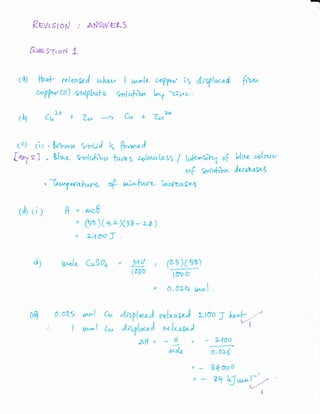 REVISION : ANSWERS
QUESTION 1
(a) Heat released when 1 mole copper is displaced from
copper(II) sulphate solution by zinc.
(b) Cu2+ + Zn → Cu + Zn2+
(c) (i) • Brown solid is formed
[any 2] • Blue solution turns colourless / Intensity of blue colour
of solution decreases
• Temperature of mixture increases
(d) (i) H = mcθ
= (50)(4.2)(38-28)
= 2100 J
ii) mole CuSO4 = MV / 1000 = (0.5)(50) / 1000
= 0.025 mol.
iii) 0.025 mol Cu displaced released 2100 J heat
1
∴ 1 mol Cu displaced released
ΔH = - H / mole = - 2100 / 0.025
= - 84000
= - 84 kJ mol-1
1